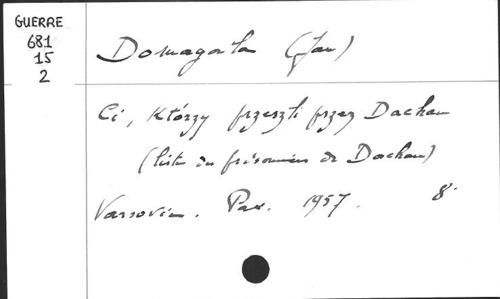 GUERRE
681
15
2
Domagała (Jan)
Ci, którzy przeszli przez Dachau
(liste des prisonniers de Dachau)
Varsovie. Pax. 1957. 8°